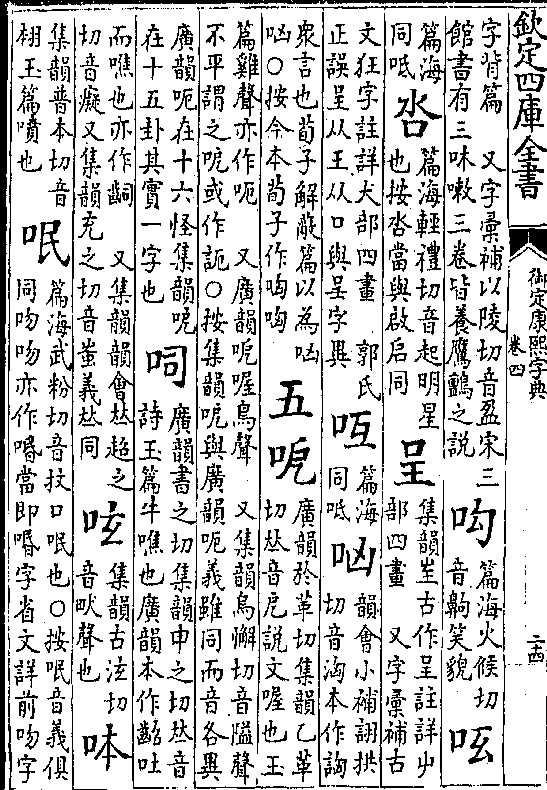 欽定四庫全書
御定康熙字典
卷四
二十四
字背篇 又字彙補以陵切音盈宋三
館書有三味嗽三卷皆養鷹鸇之説
篇海火候切
音齁笑貌
篇海
同呧
呇
篇海輕禮切音起明星
也按呇當與啟启同
呈
集韻㞷古作呈註詳屮
部四畫 又字彙補古
文狂字註詳犬部四畫 郭氏
正誤呈从王从口與呈字異
篇海
同呧
㕼
韻會小補詡拱
切音洶本作詾
衆言也荀子解蔽篇以為㕼
㕼○按今本荀子作哅哅
五
呝
廣韻於革切集韻乙革
切𠀤音戹説文喔也玉
篇雞聲亦作呃 又廣韻呝喔鳥聲 又集韻烏懈切音隘聲
不平謂之呝或作䛩○按集韻呝與廣韻呃義雖同而音各異
廣韻呃在十六怪集韻呝
在十五卦其實一字也
呞
廣韻書之切集韻申之切𠀤音
詩玉篇牛噍也廣韻本作齝吐
而噍也亦作䶵 又集韻韻會𠀤超之
切音癡又集韻充之切音蚩義𠀤同
呟
集韻古泫切
音畎聲也
呠
集韻普本切音
栩玉篇噴也
呡
篇海武粉切音抆口呡也○按呡音義俱
同吻吻亦作㖧當即㖧字省文詳前吻字